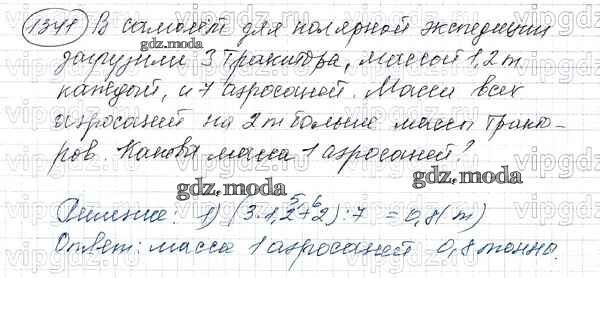 1341 В самолет для полярной экспедиции
загрузили 3 трактора, массой 1,2 т
каждый, и 7 аэросаней. Масса всех
аэросаней на 2 т больше массы тракто-
ров. Какова масса 1 аэросаней?
Решение: 1) (3·1,2+2):7 = 0,8 (т)
Ответ: масса 1 аэросаней 0,8 тонны.
gdz.moda
gdz.moda
gdz.moda
gdz.moda
vipgdz